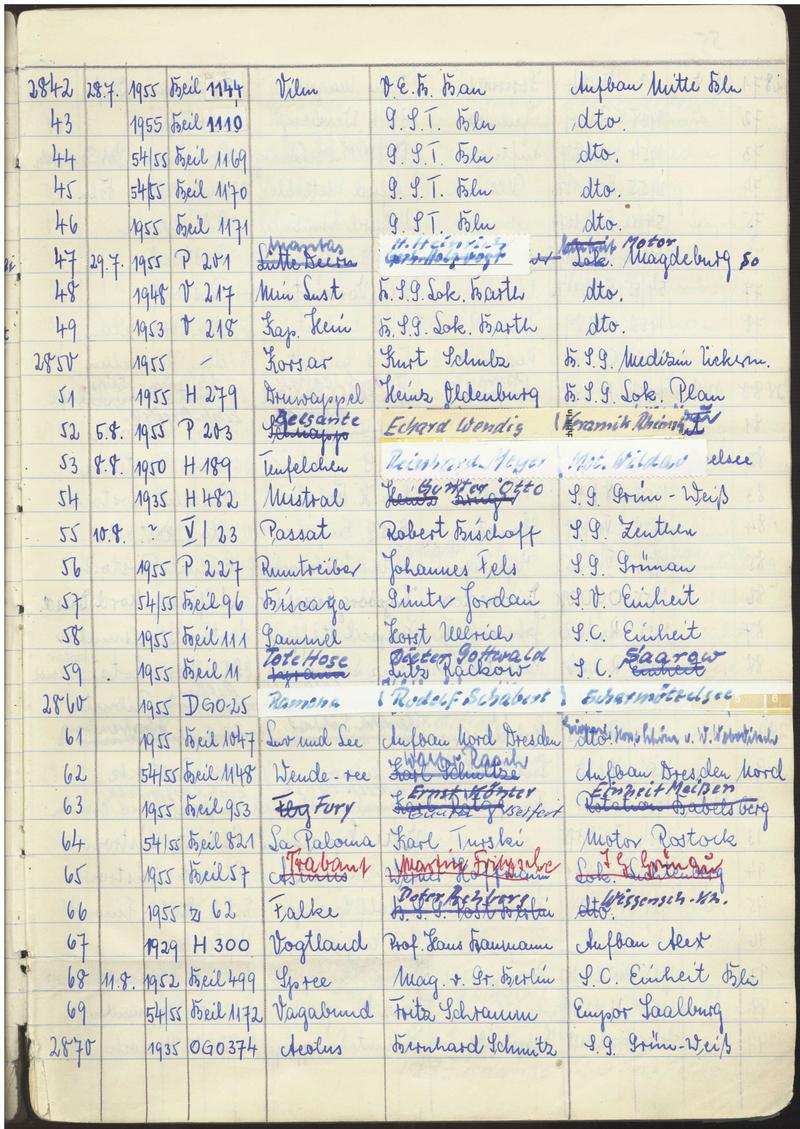 2842 28.7. 1955 Beil 1144 Vilm V.E.B. Bau Aufbau Mitte Bln
43 1955 Beil 1110 G.S.T. Bln dto.
44 54/55 Beil 1169 G.S.T. Bln dto.
45 54/55 Beil 1170 G.S.T. Bln dto.
46 1955 Beil 1171 G.S.T. Bln dto.
47 29.7. 1955 P 201 Lütte Deern H. Heinrich Motor Lok. Magdeburg so
48 1948 V 217 Min Lust B.S.G. Lok. Barth dto.
49 1953 V 218 Kap. Hein B.S.G. Lok. Barth dto.
2850 1955 – Korsar Kurt Schulz B.S.G. Medizin Uckerm.
51 1955 H 279 Druwappel Heinz Oldenburg B.S.G. Lok. Plau
52 5.8. 1955 P 203 Bersante Schnapp Echard Wendig Keramik Rheinsb
53 8.8. 1950 H 189 Teufelchen Reinhard Meyer Mot. Wildau elsee
54 1935 H 482 Mistral Günter Otto S.G. Grün-Weiß
55 10.8. ~ V/23 Passat Robert Bischoff S.G. Zeuthen
56 1955 P 227 Rumtreiber Johannes Fels S.G. Grünau
57 54/55 Beil 96 Biscaya Günter Jordan S.V. Einheit
58 1955 Beil 111 Sammel Horst Ullrich S.C. Einheit
59 1955 Beil 11 Tote Hose Tyrann Dieter Gottwald Lutz Zackow S.C. Saarow Einheit
2860 1955 DGO 25 Ramona Rudolf Schabert Scharmützelsee
61 1955 Beil 1047 Luv und Lee Aufbau Nord Dresden dto.
62 54/55 Beil 1148 Wende-ree Karl Schultze Aufbau Dresden Nord
63 1955 Beil 953 Fury Ernst Köster Seifert Einheit Meißen Rotation Babelsberg
64 54/55 Beil 821 La Paloma Karl Turski Motor Rostock
65 1955 Beil 57 Trabant Martin Fritzsche Werner Hoffmann S.G. Grünau Lok. Lichtenberg
66 1955 Z 62 Falke Peter Rehberg B.S.G. Post Berlin Wissensch. dto.
67 1929 H 300 Vogtland Prof. Hans Baumann Aufbau Alex
68 11.8. 1952 Beil 499 Spree Mag. v. Gr. Berlin S.C. Einheit Bln
69 54/55 Beil 1172 Vagabund Fritz Schramm Empor Saalburg
2870 1935 OGO374 Aeolus Bernhard Schmitz S.G. Grün-Weiß